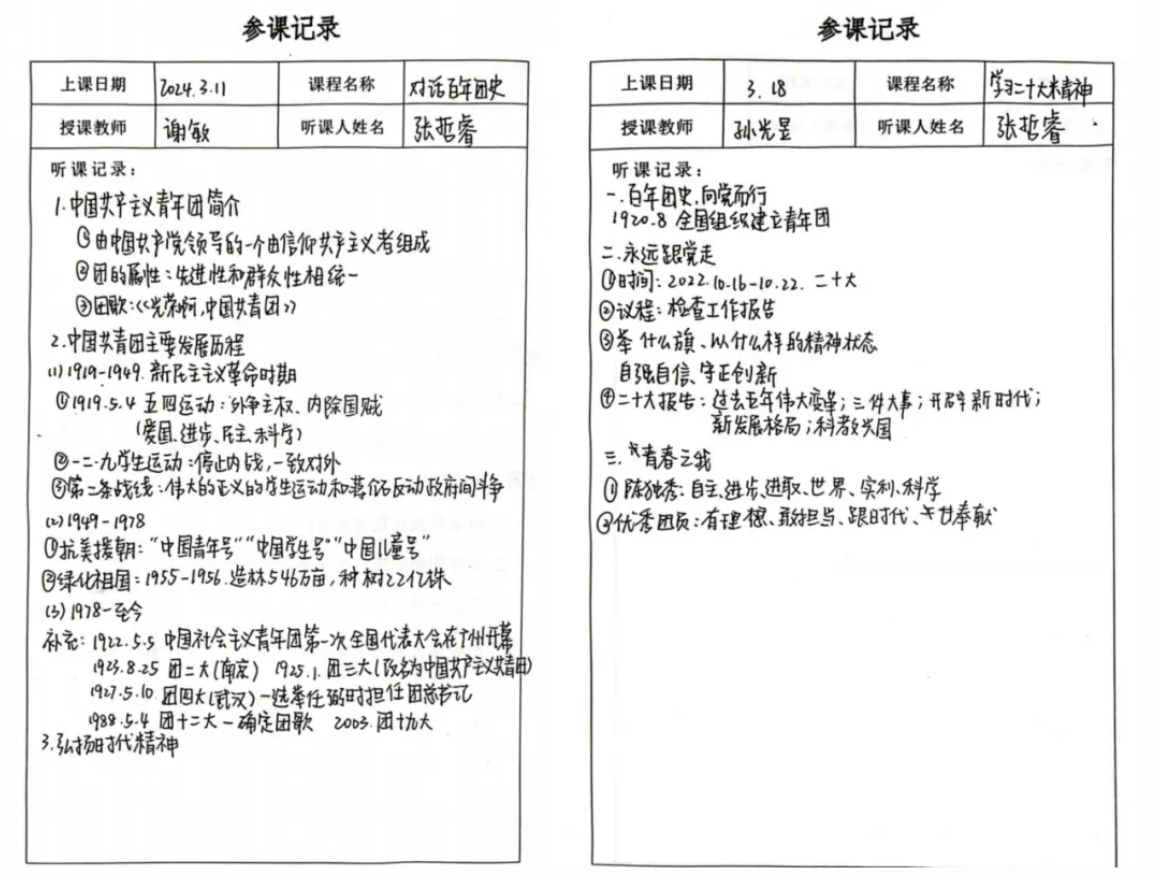 参课记录
上课日期 2024.3.11 课程名称 对话百年团史
授课教师 谢敏 听课人姓名 张哲睿
听课记录：
1.中国共产主义青年团简介
①由中国共产党领导的一个由信仰共产主义者组成
②团的属性：先进性和群众性相统一
③团歌：《光荣啊，中国共青团》
2.中国共青团主要发展历程
(1)1919-1949.新民主主义革命时期
①1919.5.4 五四运动：外争主权、内除国贼
(爱国、进步、民主、科学)
②一二·九学生运动：停止内战，一致对外
③第二条战线：伟大的正义的学生运动和蒋介石反动政府间斗争
(2)1949-1978
①抗美援朝：“中国青年号”“中国学生号”“中国儿童号”
②绿化祖国：1955-1956.造林546万亩，种树22亿株
(3)1978-至今
补充：1922.5.5 中国社会主义青年团第一次全国代表大会在广州开幕
1923.8.25 团二大(南京) 1925.1.团三大(改名为中国共产主义共青团)
1927.5.10.团四大(武汉)-选举任弼时担任团总书记
1988.5.4 团十二大-确定团歌 2003.团十九大
3.弘扬时代精神
参课记录
上课日期 3.18 课程名称 学习二十大精神
授课教师 孙光昱 听课人姓名 张哲睿
听课记录：
一.百年团史,向党而行
1920.8 全国组织建立青年团
二.永远跟党走
①时间：2022.10.16-10.22. 二十大
②议程：检查工作报告
③举什么旗、以什么样的精神状态
自强自信、守正创新
④二十大报告：过去五年伟大变革；三件大事；开辟新时代；
新发展格局；科教兴国
三.青春之我
①陈独秀：自主、进步、进取、世界、实利、科学
②优秀团员：有理想、敢担当、跟时代、甘奉献